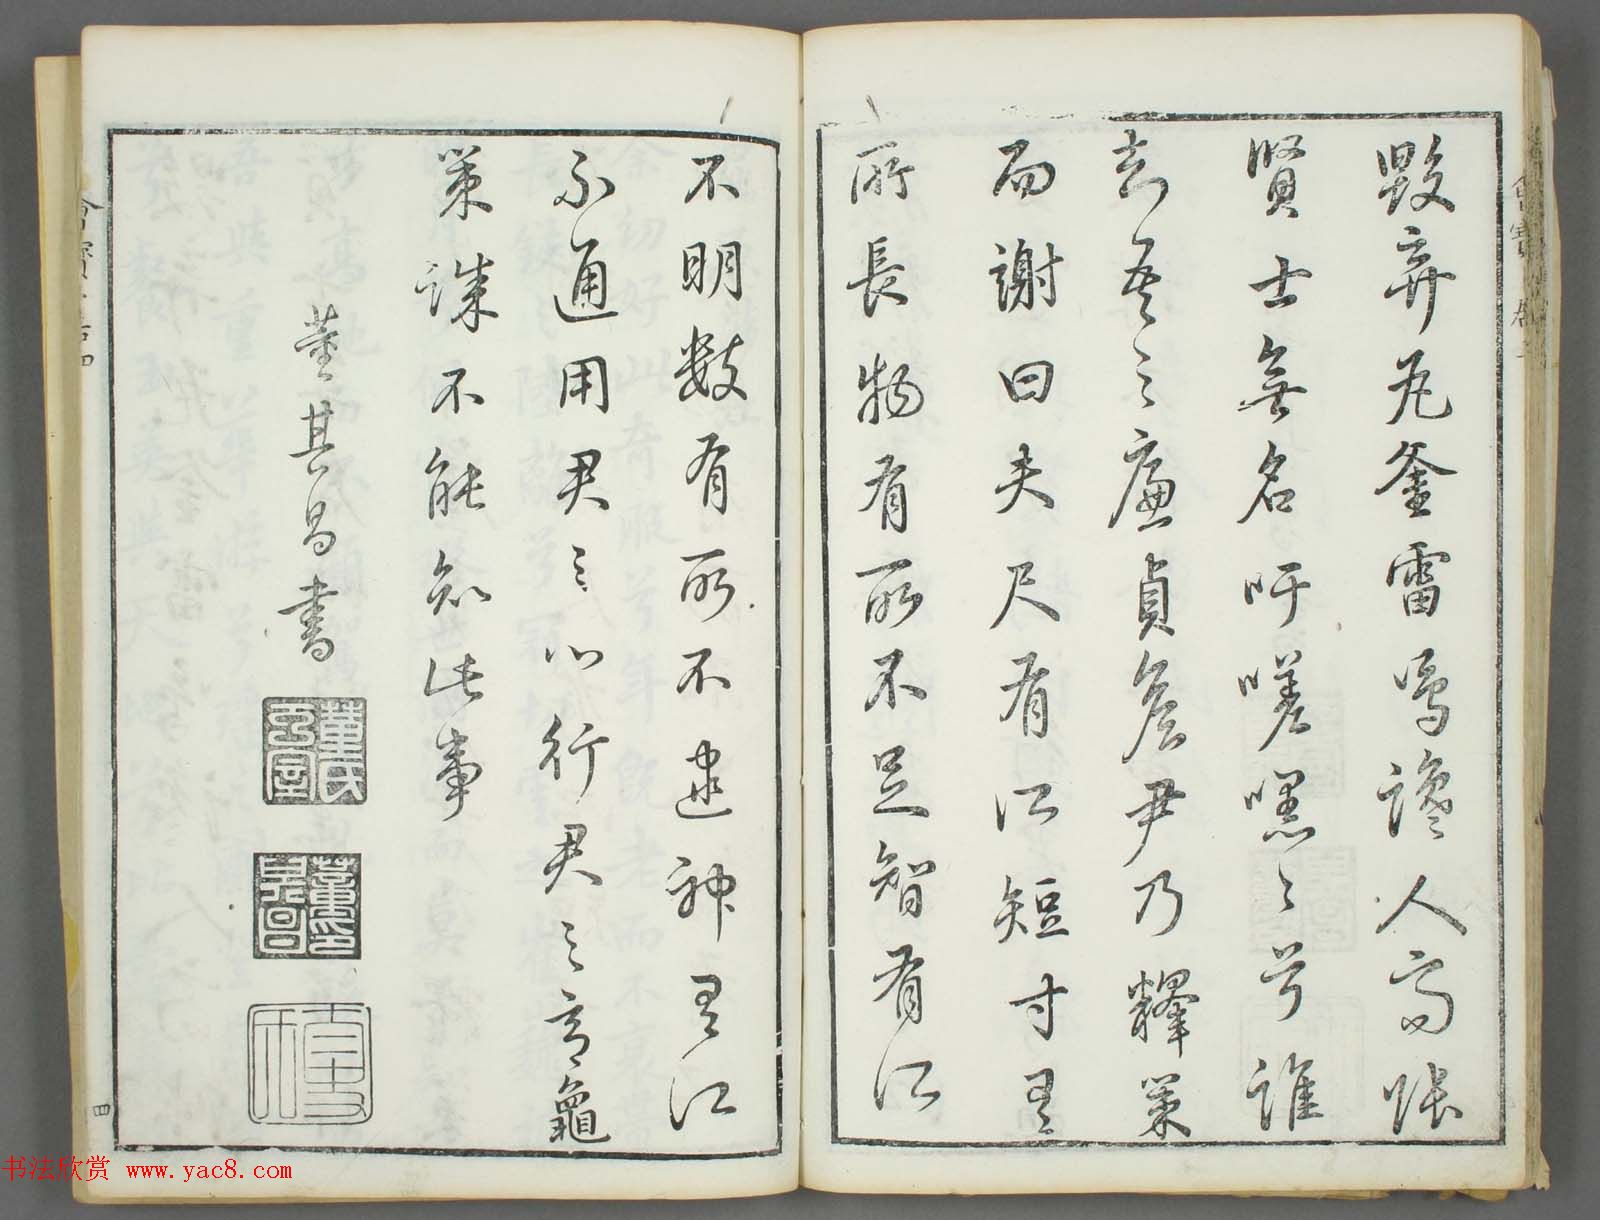 毀弃瓦釜雷鳴讒人高張
賢士無名吁嗟嘿〻兮誰
知吾之廉貞詹尹乃釋策
而謝曰夫尺有所短寸有
所長物有所不足智有所
不明數有所不逮神有所
不通用君之心行君之意龜
策誠不能知此事
董其昌書
董氏玄宰
董印其昌
四
书法欣赏 www.yac8.com